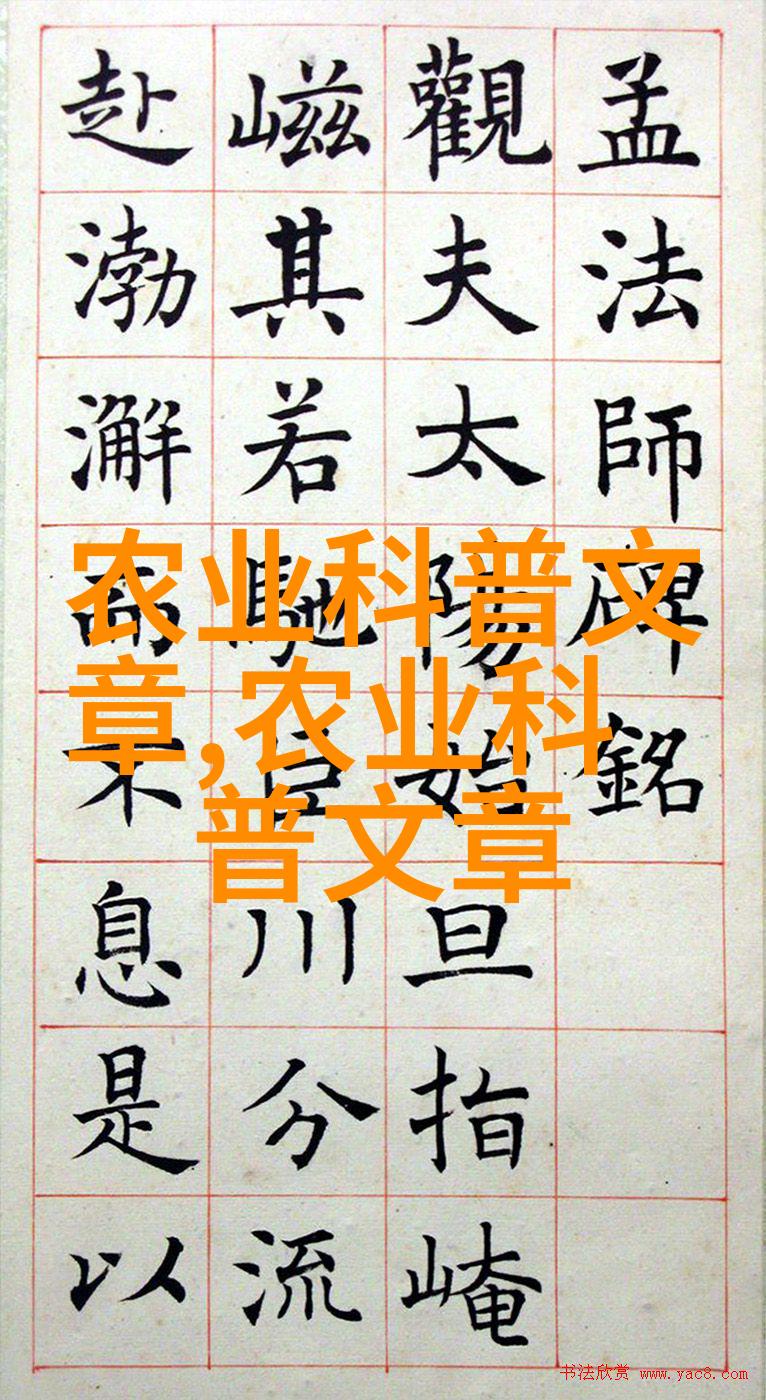 孟法師碑銘
觀夫太陽始旦指崦
嵫其若馳巨川分流
赴渤澥而不息是以
农业科普文
章,农业科
普文章
书法欣赏 www.yac8.com